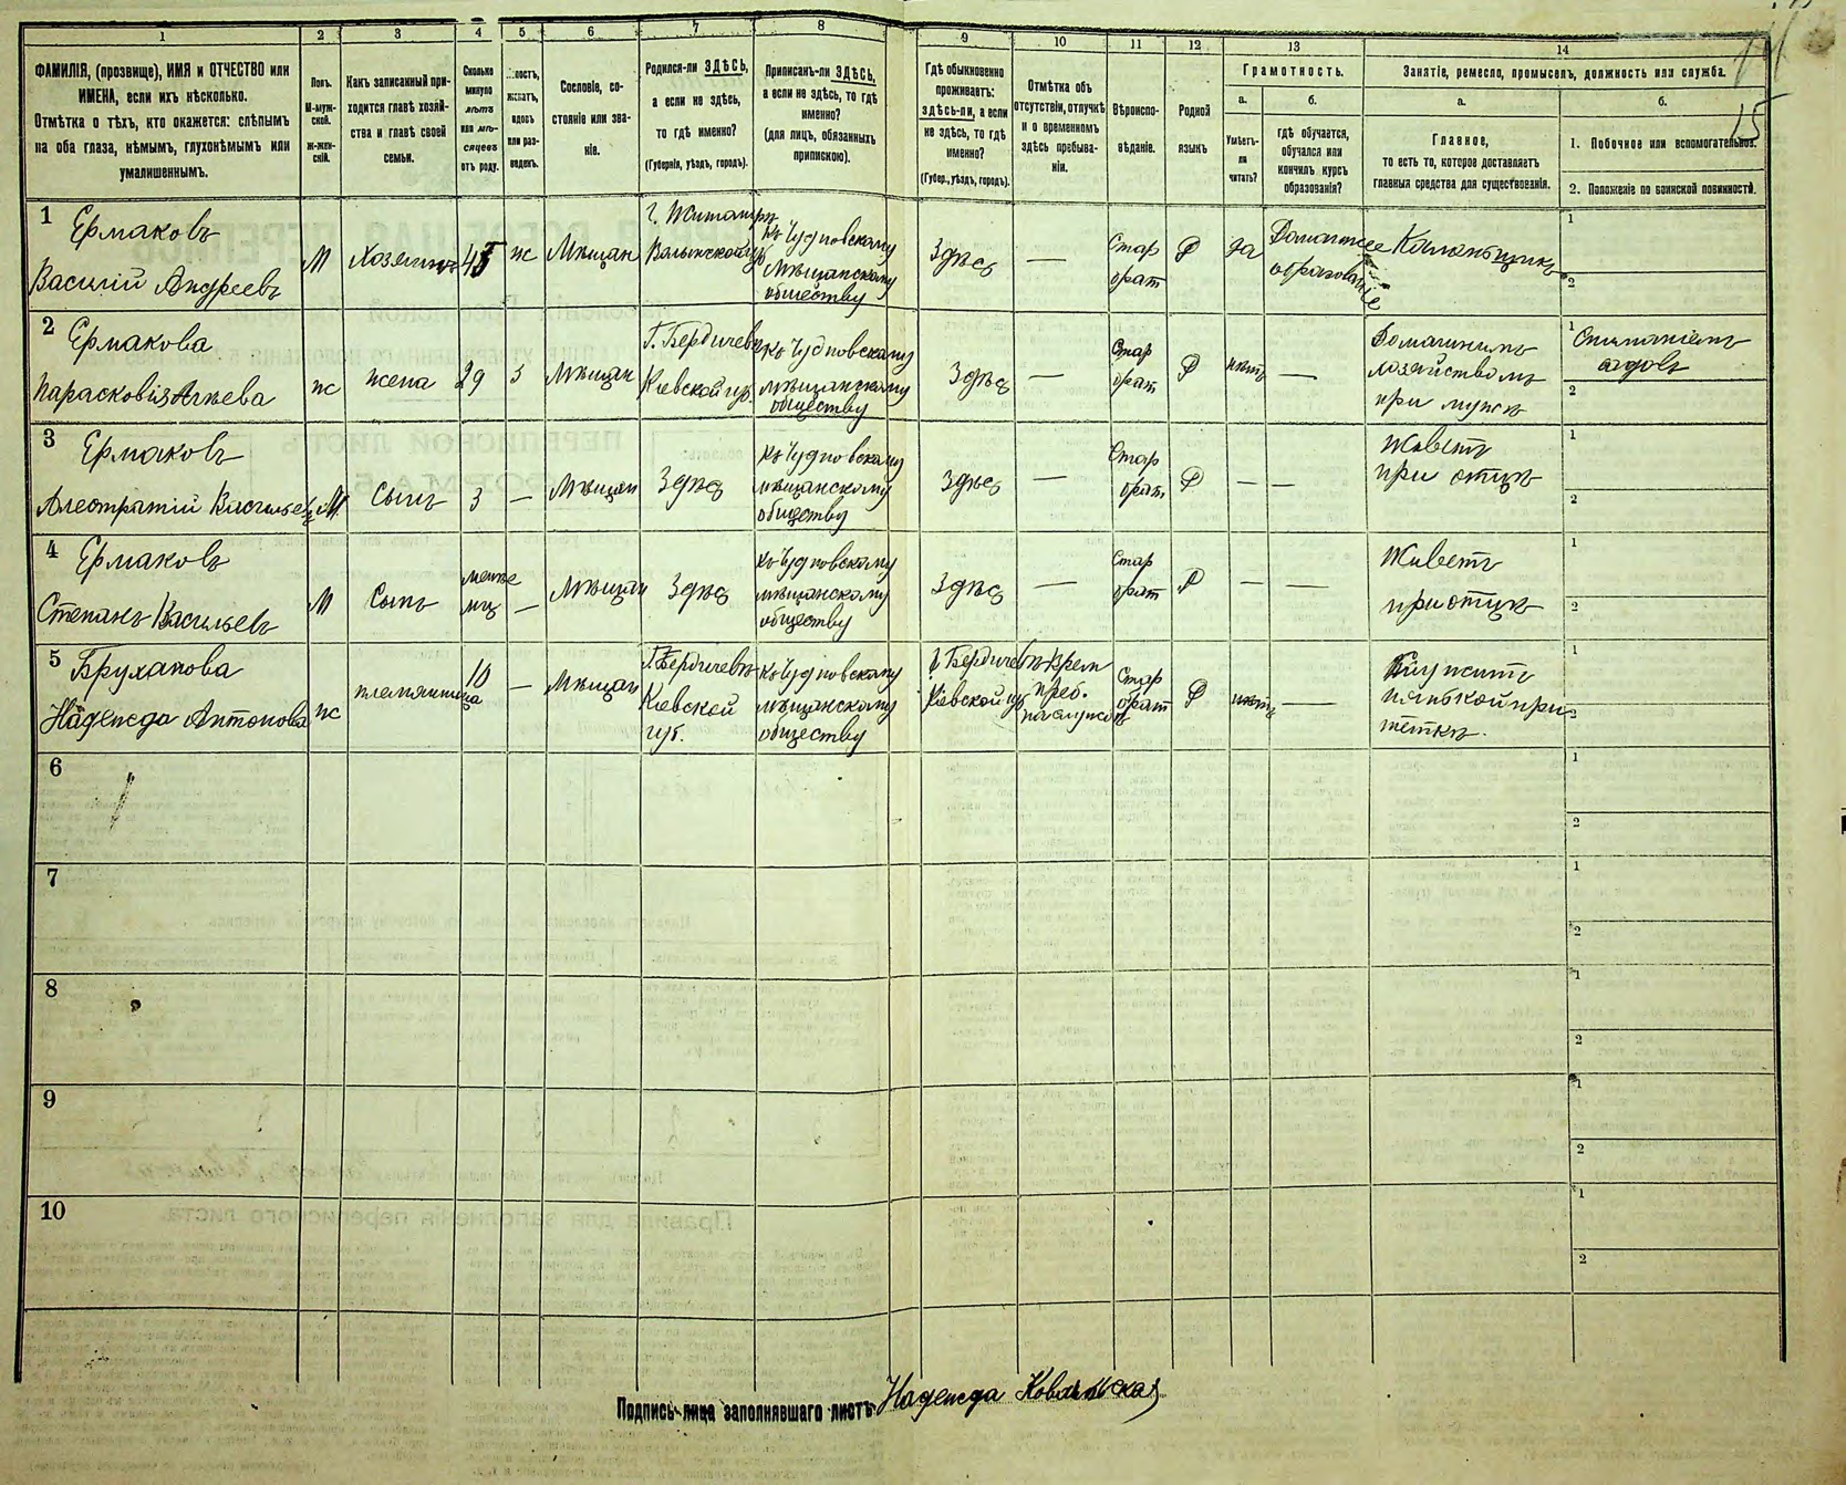 1 2 3 4 5 6 7 8 9 10 11 12 13 14
ФАМИЛІЯ, (прозвище), ИМЯ и ОТЧЕСТВО или
ИМЕНА, если ихъ нѣсколько.
Отмѣтка о тѣхъ, кто окажется: слѣпымъ
на оба глаза, нѣмымъ, глухонѣмымъ или
умалишеннымъ.
Полъ.
М-муж-
ской.
Ж-жен-
скій.
Какъ записанный при-
ходится главѣ хозяй-
ства и главѣ своей
семьи.
Сколько
минуло
лѣтъ
или мѣ-
сяцевъ
отъ роду.
женатъ,
вдовъ
или раз-
веденъ.
Сословіе, со-
стояніе или зва-
ніе.
Родился-ли ЗДѢСЬ,
а если не здѣсь,
то гдѣ именно?
(Губернія, уѣздъ, городъ).
Приписанъ-ли ЗДѢСЬ,
а если не здѣсь, то гдѣ
именно?
(для лицъ, обязанныхъ
припискою).
Гдѣ обыкновенно
проживаетъ:
здѣсь-ли, а если
не здѣсь, то гдѣ
именно?
(Губер., уѣздъ, городъ).
Отмѣтка объ
отсутствіи, отлучкѣ
и о временномъ
здѣсь пребыва-
ніи.
Вѣроиспо-
вѣданіе.
Родной
языкъ
Грамотность.
а.
Умѣетъ-
ли
читать?
б.
гдѣ обучается,
обучался или
кончилъ курсъ
образованія?
Занятіе, ремесло, промыселъ, должность или служба.
а.
Главное,
то есть то, которое доставляетъ
главныя средства для существованія.
б.
1. Побочное или вспомогательное.
2. Положеніе по воинской повинности.
15
1 Ермаковъ
Василій Андреевъ
М
Хозяинъ
45
ж
Мѣщан
г. Житомиръ
Волынской гу
къ Чудновскому
Мѣщанскому
обществу
Здѣсь
—
Стар
обрат
Р
да
Домашнее
образованіе
Каменьщикъ
1
2
2 Ермакова
Парасковія
ж
жена
29
З
Мѣщан
Г. Бердичевъ
Кіевской гу.
къ Чудновскому
мѣщанскому
обществу
Здѣсь
—
Стар
обрат
Р
нѣтъ
—
Домашнимъ
хозяйствомъ
при мужѣ
1
садовъ
2
3 Ермаковъ
М
Сынъ
3
—
Мѣщан
Здѣсь
къ Чудновскому
мѣщанскому
обществу
Здѣсь
—
Стар
обрат
Р
— —
Живетъ
при отцѣ
1
2
4 Ермаковъ
Степанъ Васильевъ
М
Сынъ
менѣе
мц
—
Мѣщан
Здѣсь
къ Чудновскому
мѣщанскому
обществу
Здѣсь
—
Стар
обрат
Р
— —
Живетъ
при отцѣ
1
2
5 Бруханова
Надежда Антонова
ж
племянница
10
—
Мѣщан
Г. Бердичевъ
Кіевской
губ.
къ Чудновскому
мѣщанскому
обществу
г. Бердичевъ
Кіевской гу
Врем
преб.
Стар
обрат
Р
нѣтъ
—
Служитъ
нянькой при
теткѣ.
1
2
6
1
2
7
1
2
8
1
2
9
1
2
10
1
2
Подпись лица заполнявшаго листъ Надежда Ковальская